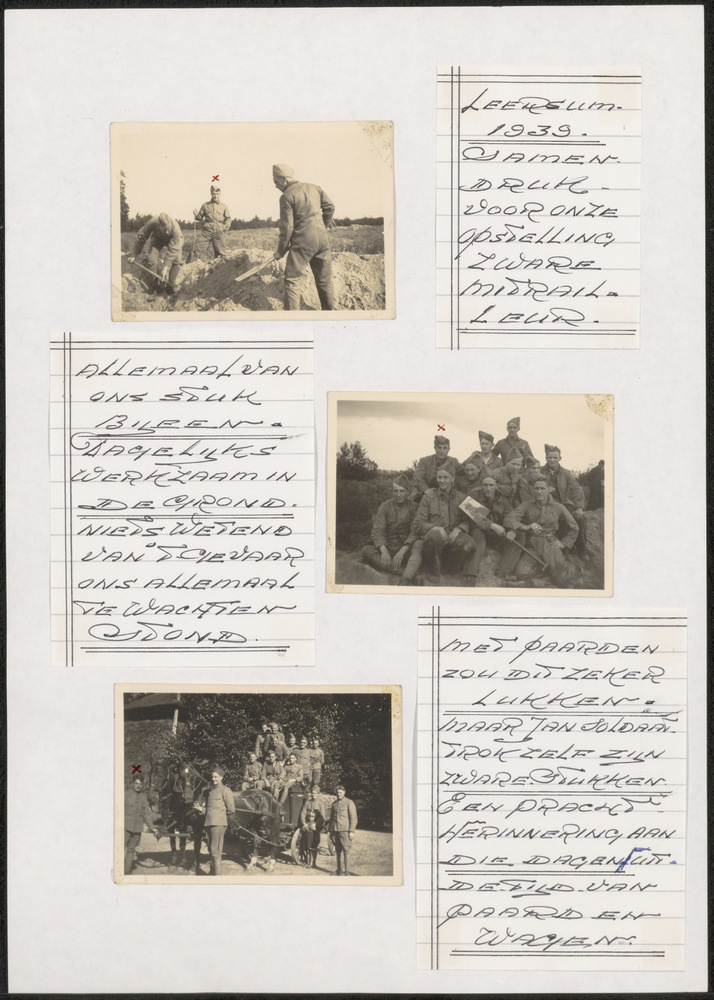 LEERSUM.
1939.
SAMEN.
DRUK.
VOOR ONZE
OPSTELLING
ZWARE
MITRAIL-
LEUR.
ALLEMAAL VAN
ONS STUK
BIJEEN.
DAGELIJKS
WERKZAAM IN
DE GROND.
NIETS WETEND
VAN 'T GEVAAR
ONS ALLEMAAL
TE WACHTEN
STOND.
MET PAARDEN
ZOU DIT ZEKER
LUKKEN.
MAAR JAN SOLDAAT.
TROK ZELF ZIJN
ZWARE STUKKEN.
EEN PRACHT
HERINNERING AAN
DIE DAGEN UIT.
DE TIJD VAN
PAARD EN
WAGEN.